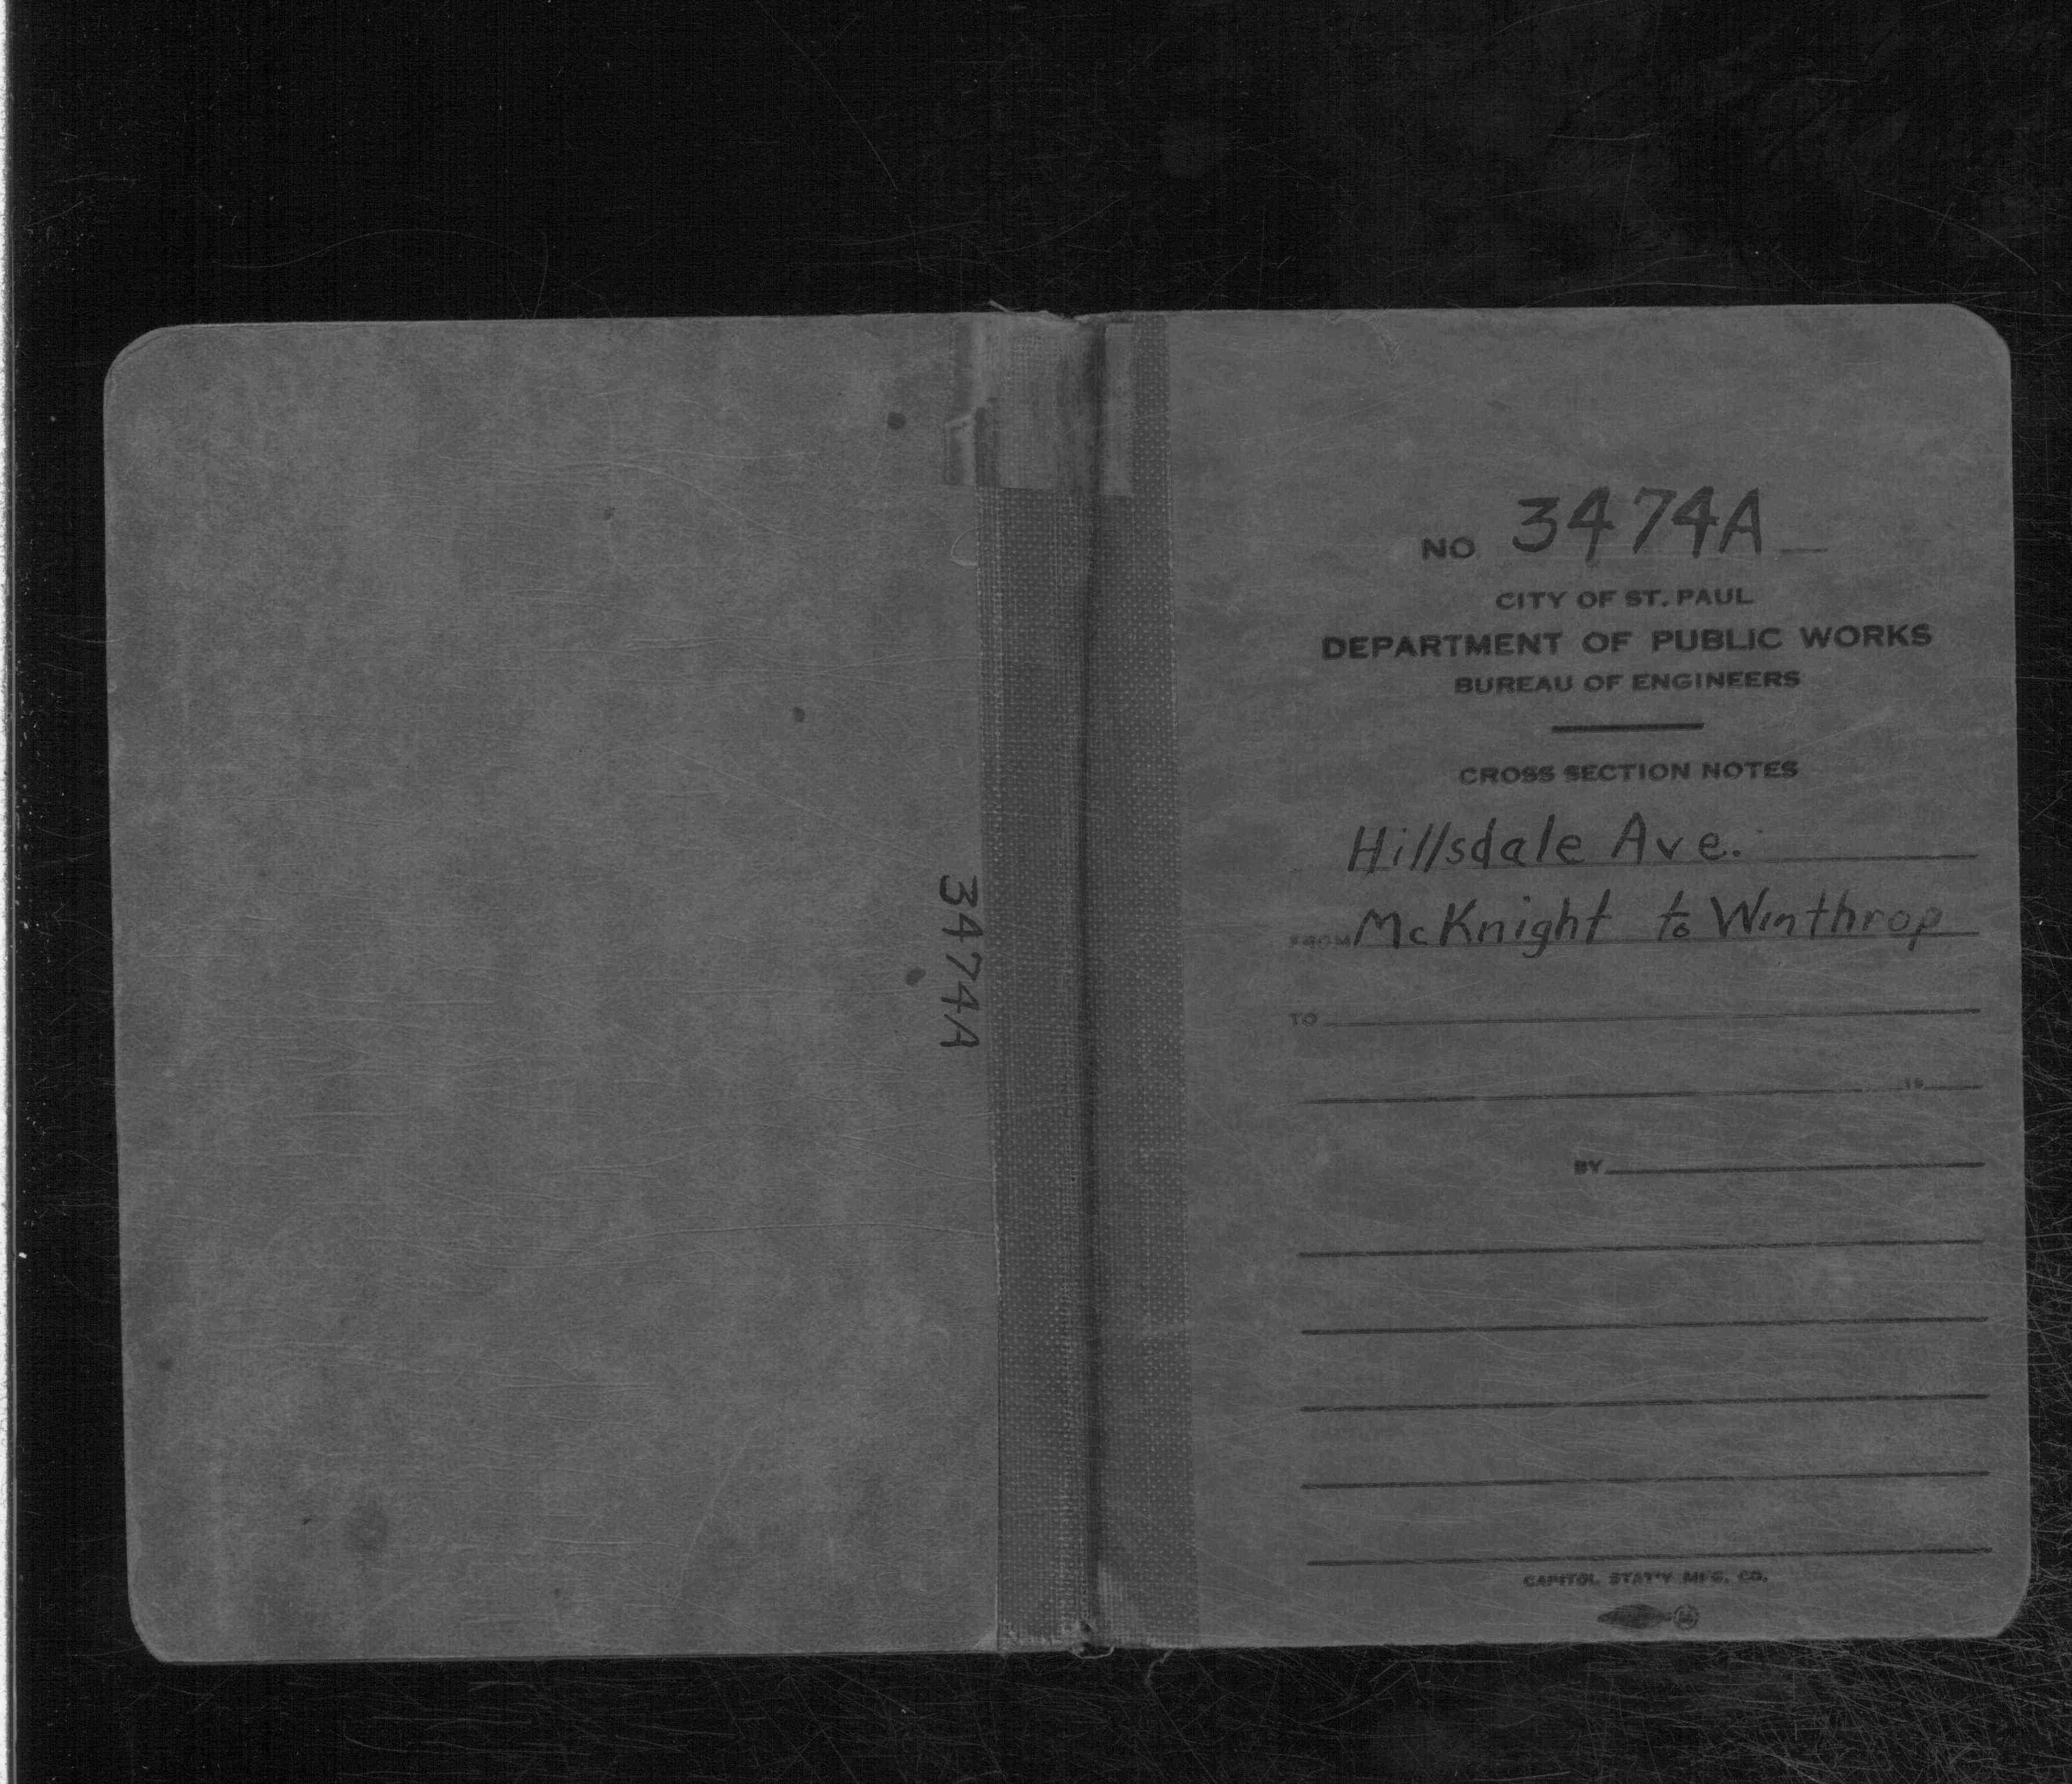 3474A
NO 3474A
CITY OF ST. PAUL
DEPARTMENT OF PUBLIC WORKS
BUREAU OF ENGINEERS
CROSS SECTION NOTES
Hillsdale Ave.
FROM McKnight to Winthrop
TO
19
BY
CAPITOL STAT'Y MFG. CO.